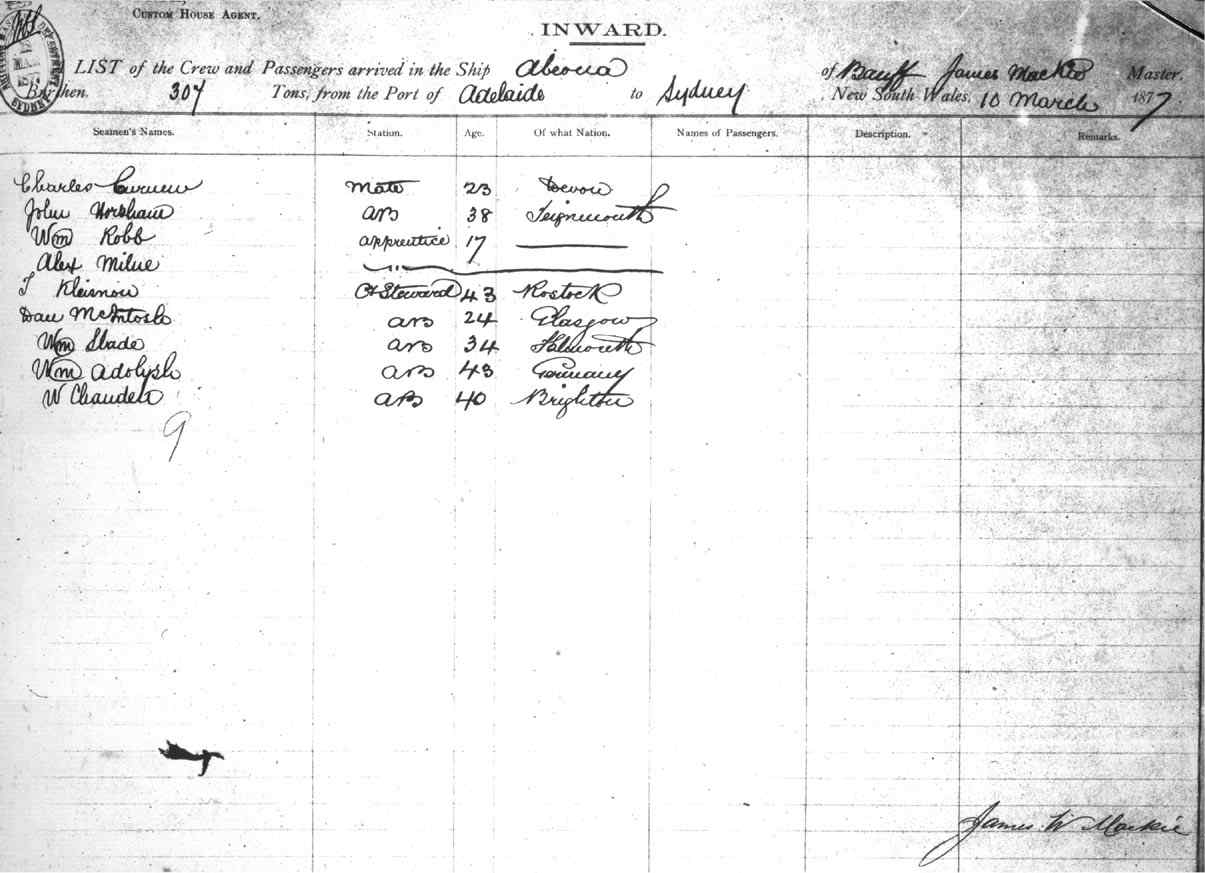 CUSTOM HOUSE AGENT.
INWARD.
LIST of the Crew and Passengers arrived in the Ship Abeona of Banff James Mackie Master,
Burthen. 307 Tons, from the Port of Adelaide to Sydney New South Wales, 10 March 1877
Seamen's Names. Station. Age. Of what Nation. Names of Passengers. Description. Remarks.
Charles Curnew Mate 23 Devon
John Horsham AB 38 Teignmouth
Wm Robb apprentice 17
Alex Milne "
Kleisnow Steward 43 Rostock
Dan McIntosh AB 24 Glasgow
Wm Slade AB 34 Falmouth
Wm Adolph AB 43 Germany
W AB 40 Brighton
9
James W Mackie